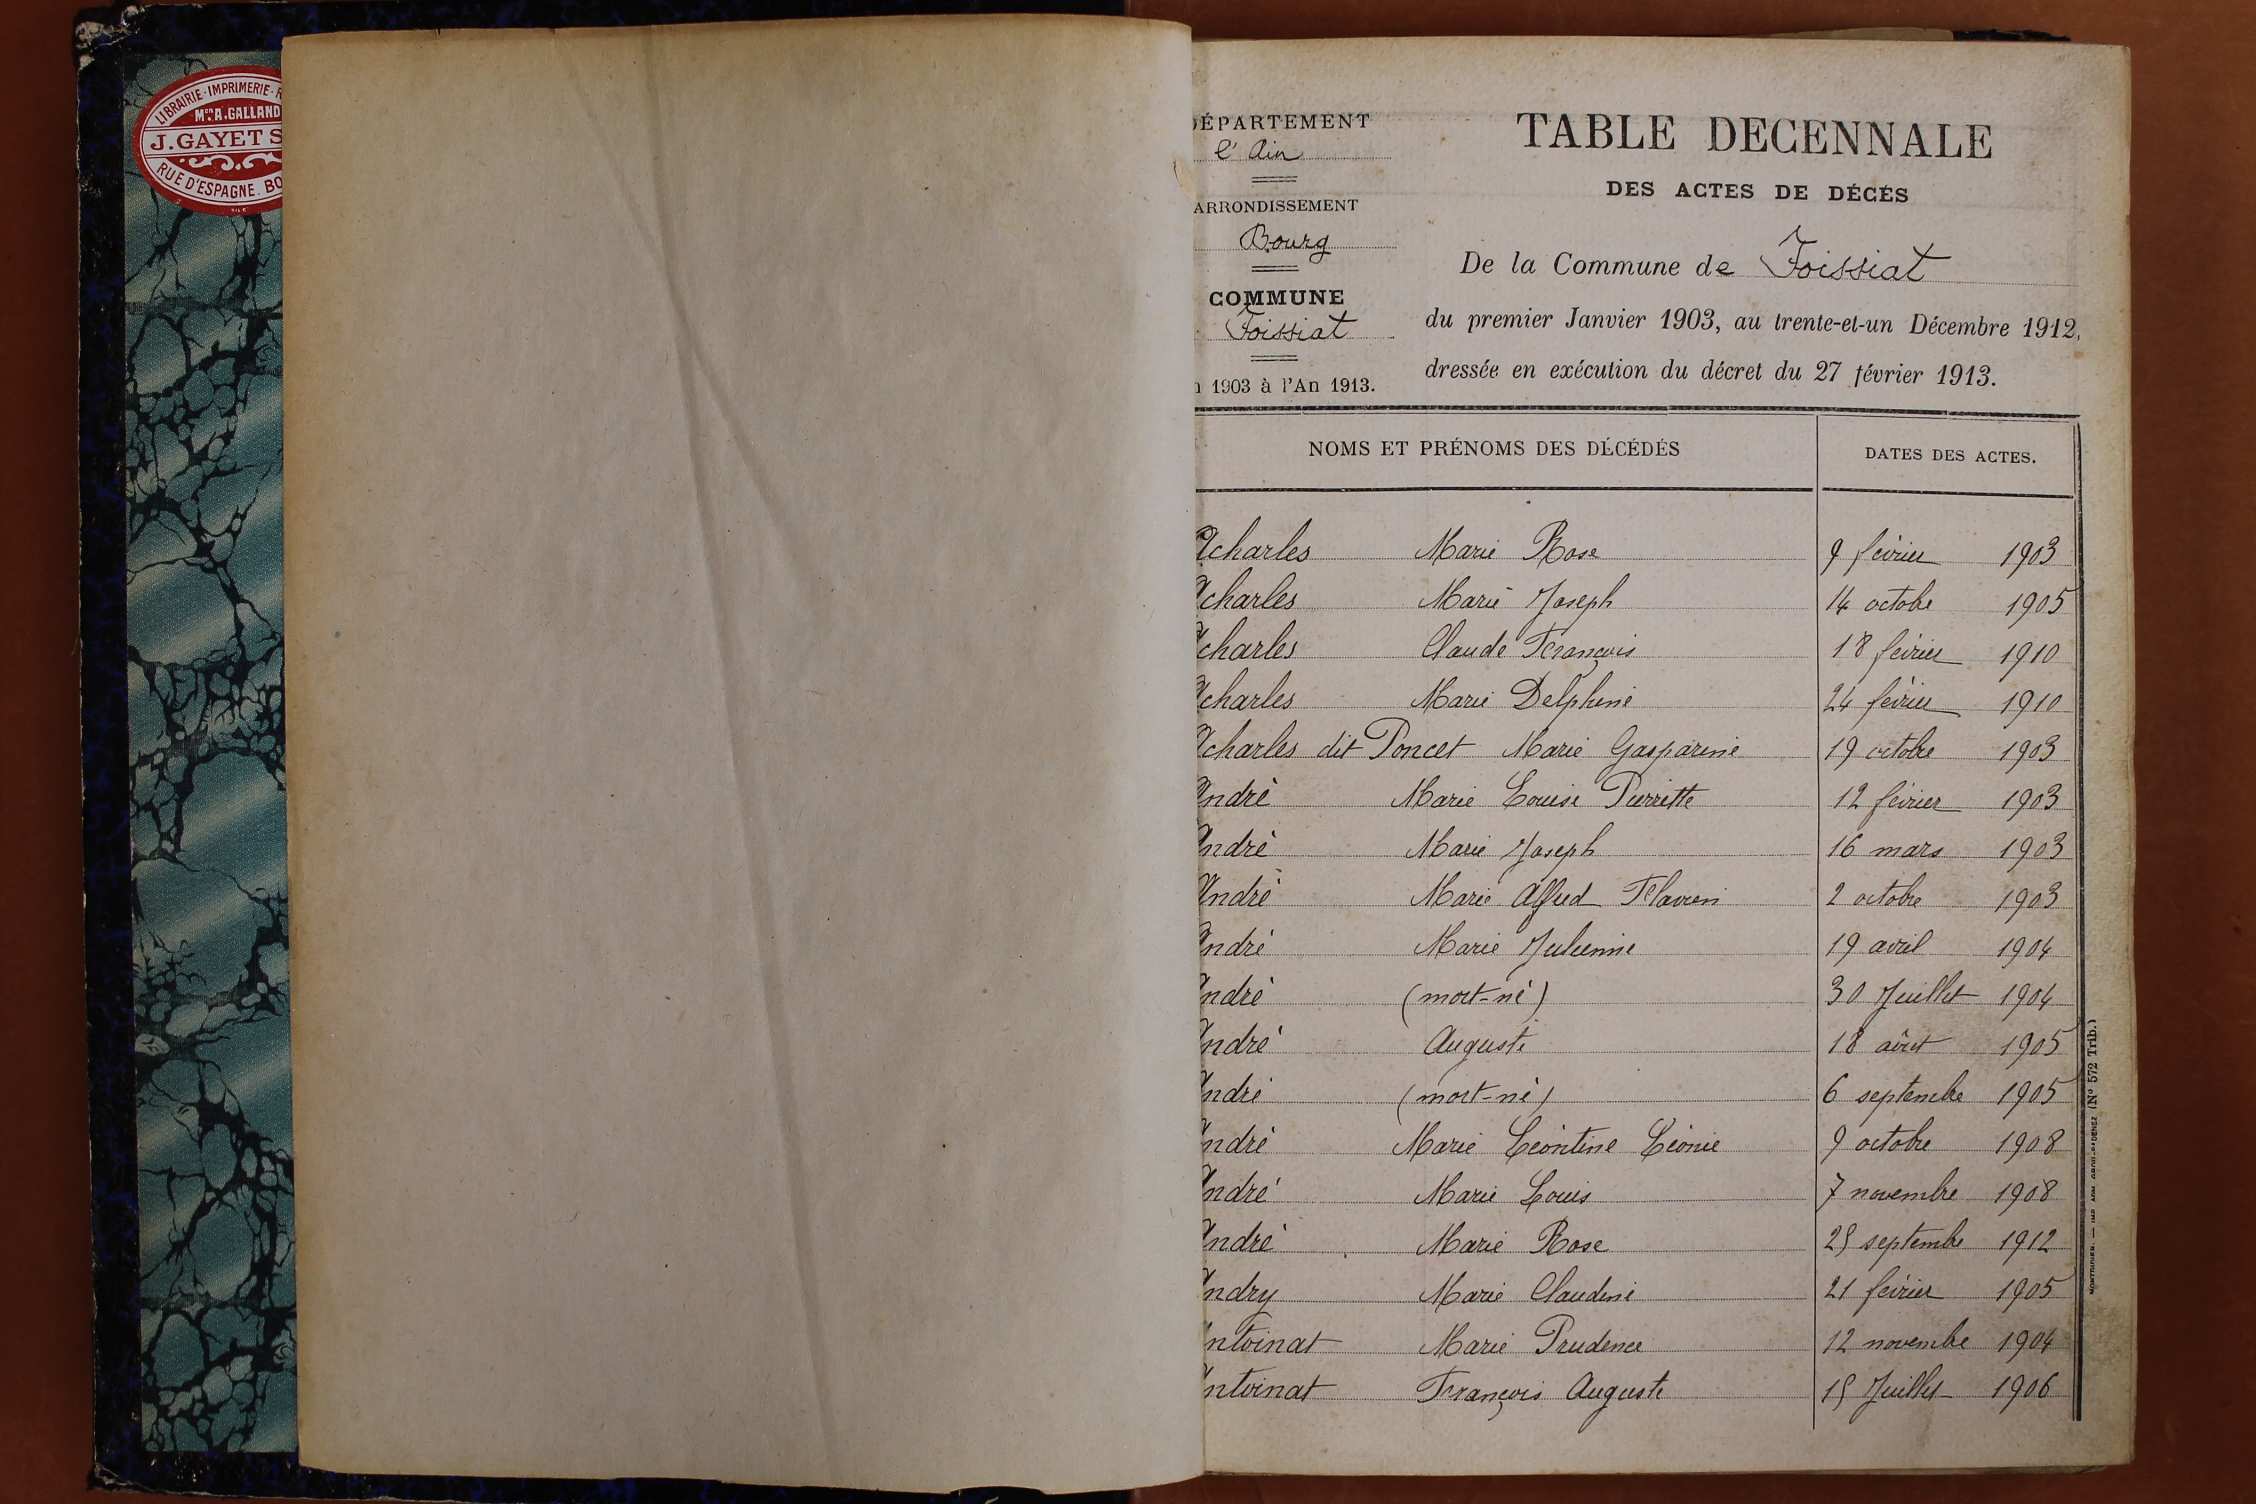 LIBRAIRIE-IMPRIMERIE-R
Mon A. GALLAND
J. GAYET S
RUE D'ESPAGNE. BO
DÉPARTEMENT
l'Ain
ARRONDISSEMENT
Bourg
COMMUNE
Foissiat
n 1903 à l'An 1913.
TABLE DECENNALE
DES ACTES DE DÉCÉS
De la Commune de Foissiat
du premier Janvier 1903, au trente-et-un Décembre 1912,
dressée en exécution du décret du 27 février 1913.
NOMS ET PRÉNOMS DES DÉCÉDÉS DATES DES ACTES.
Acharles Marie Rose 9 février 1903
Acharles Marie Joseph 14 octobre 1905
Acharles Claude François 18 février 1910
Acharles Marie Delphine 24 février 1910
Acharles dit Poncet Marie Gasparine 19 octobre 1903
André Marie Louise Pierrette 12 février 1903
André Marie Joseph 16 mars 1903
André Marie Alfred Flavien 2 octobre 1903
André Marie Julienne 19 avril 1904
André (mort-né) 30 Juillet 1904
André Auguste 18 août 1905
André (mort-né) 6 septembre 1905
André Marie Léontine Léonie 9 octobre 1908
André Marie Louis 7 novembre 1908
André Marie Rose 25 septembre 1912
Andry Marie Claudine 21 février 1905
Antoinat Marie Prudence 12 novembre 1904
Antoinat François Auguste 15 Juillet 1906
(No 572 Trib.)